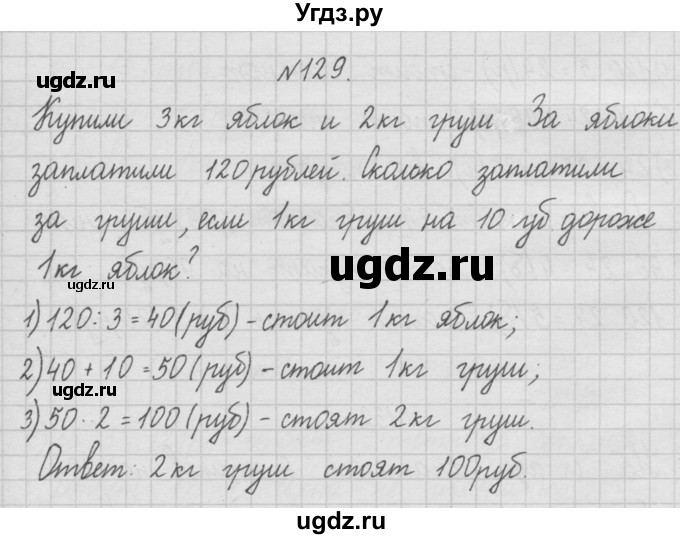 Угдз.ру
ugdz.ru
№129.
Купили 3кг яблок и 2кг груш За яблоки
заплатили 120рублей. Сколько заплатили
за груши, если 1кг груш на 10 руб дороже
1кг яблок?
ugdz.ru
ugdz.ru
1) 120:3=40(руб)-стоит 1кг яблок;
2) 40+10=50(руб)-стоит 1кг груш;
ugdz.ru
3) 50·2=100(руб)-стоят 2кг груш.
Ответ: 2кг груш стоят 100руб.
ugdz.ru
ugdz.ru